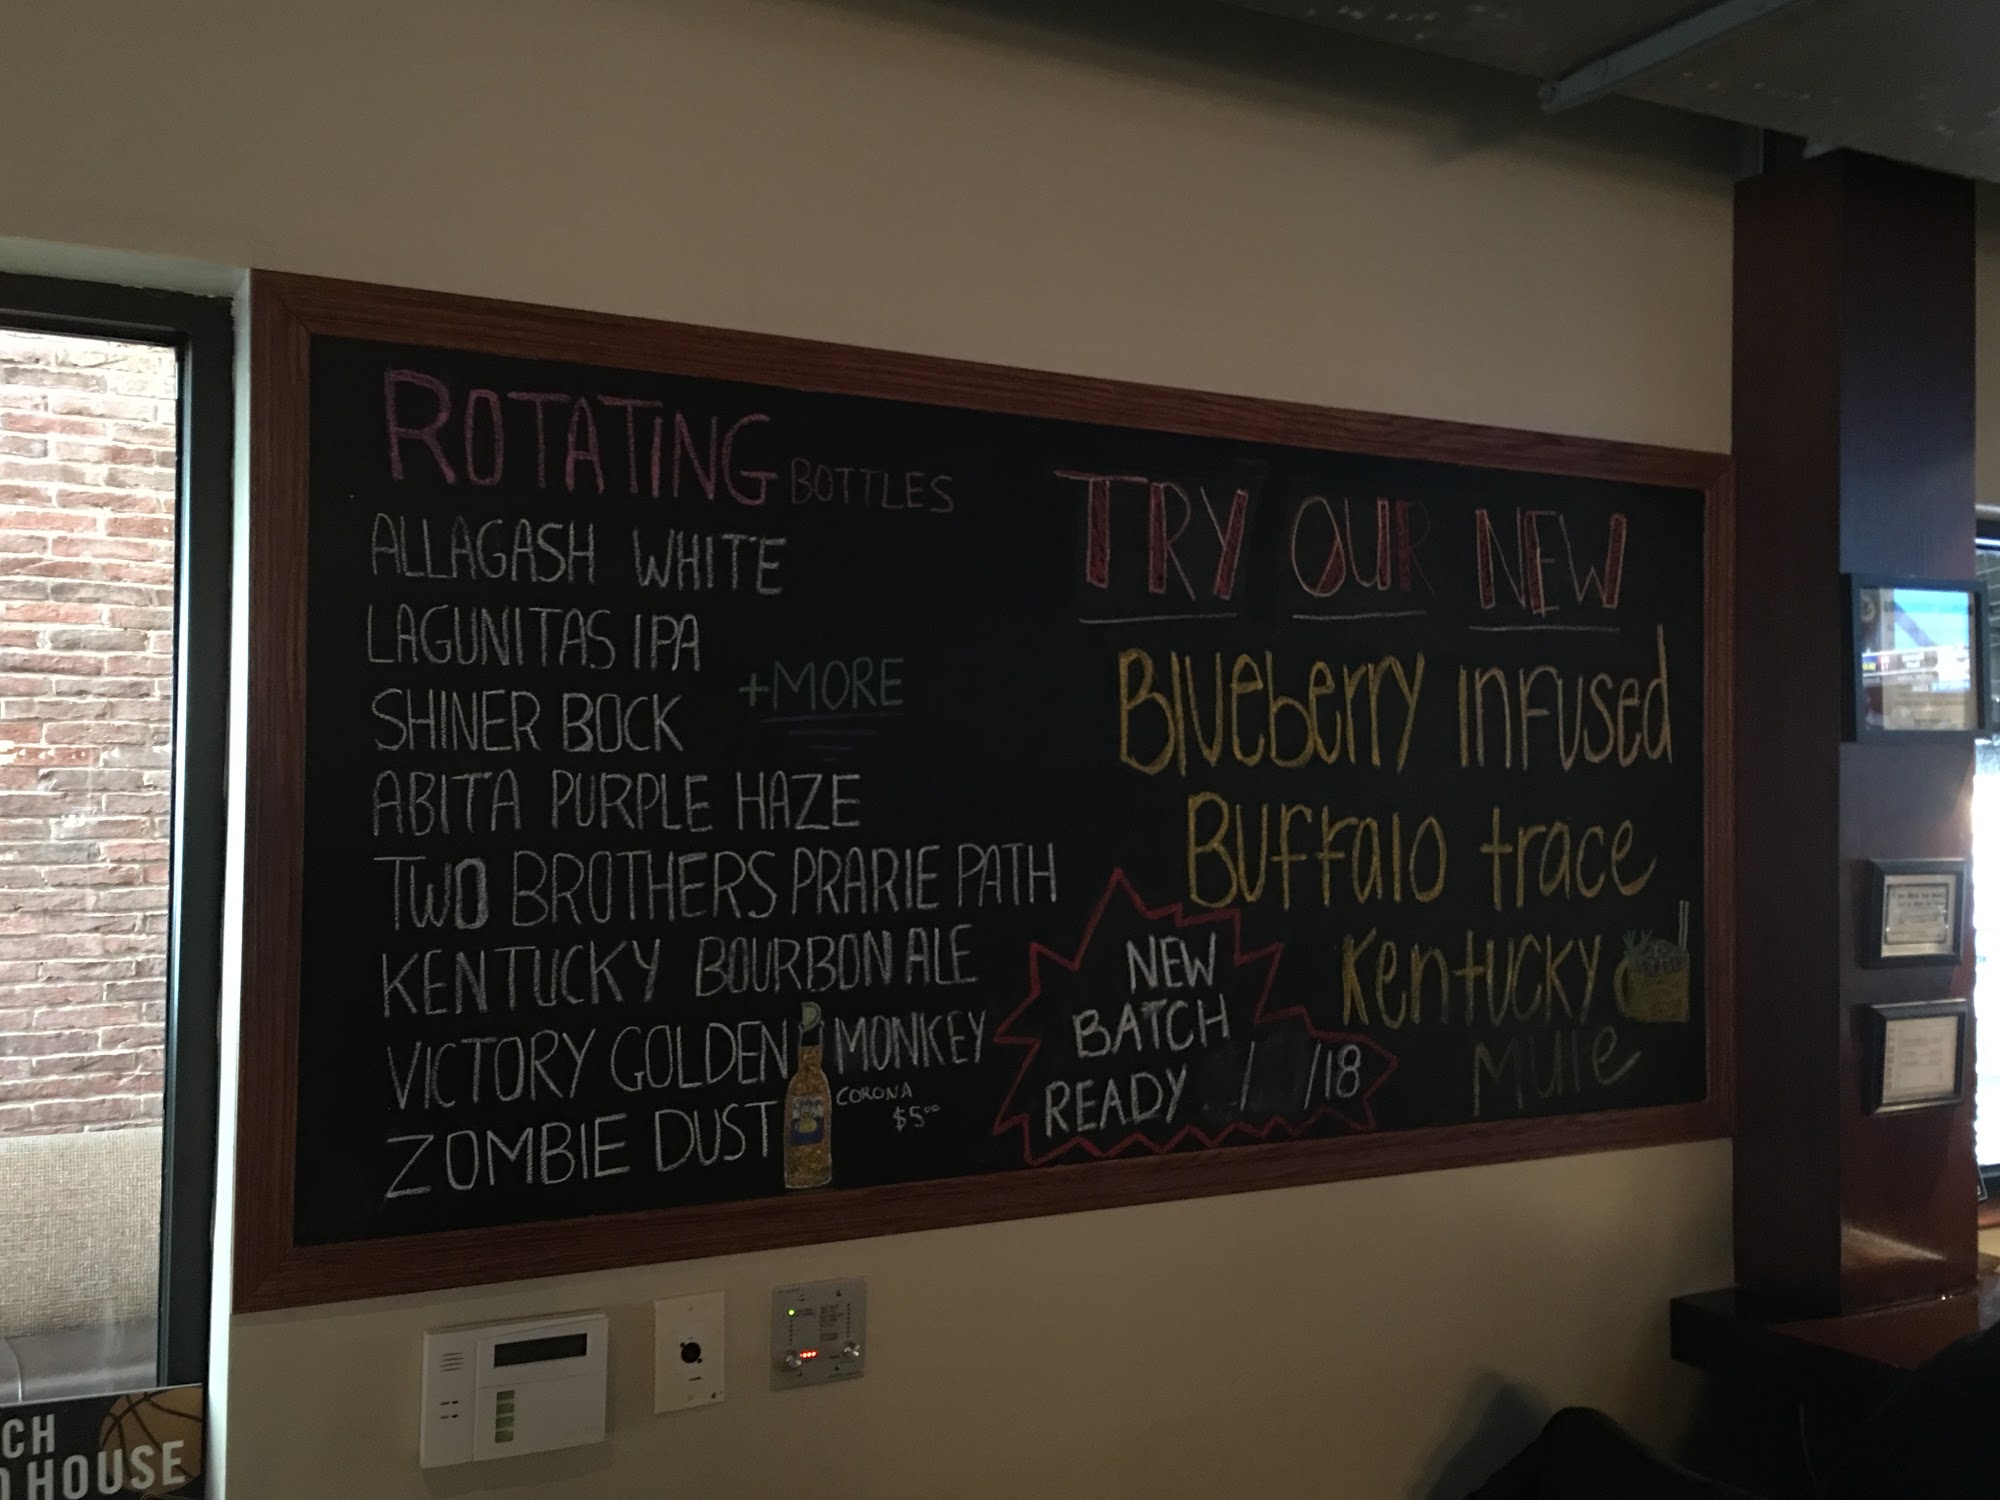 ROTATING BOTTLES
ALLAGASH WHITE
LAGUNITAS IPA
SHINER BOCK
+MORE
ABITA PURPLE HAZE
TWO BROTHERS PRARIE PATH
KENTUCKY BOURBON ALE
VICTORY GOLDEN MONKEY
ZOMBIE DUST
CORONA
$5.00
TRY OUR NEW
Blueberry infused
Buffalo trace
Kentucky
Mule
NEW
BATCH
READY / /18
CH
HOUSE